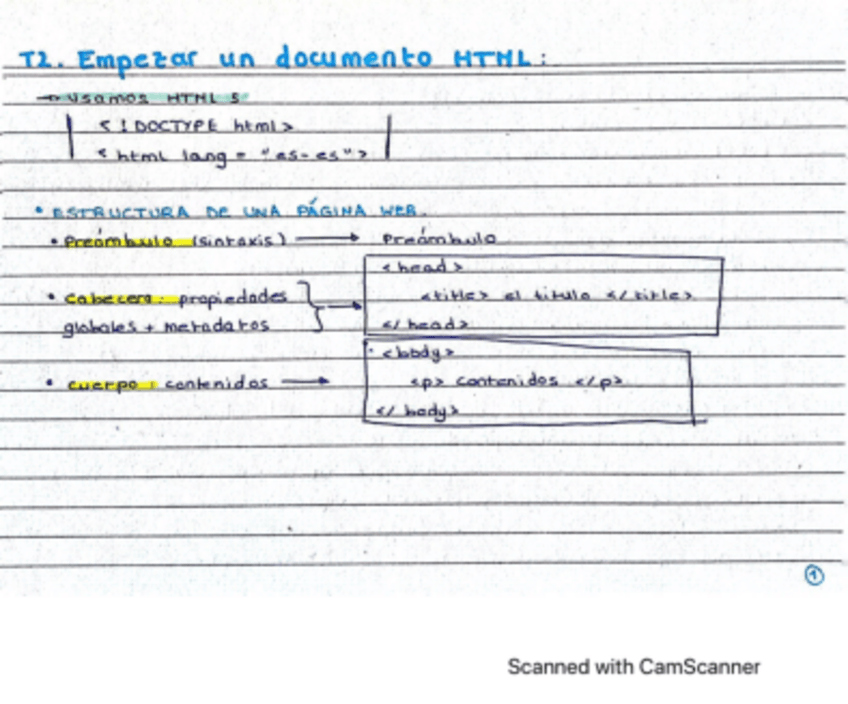 T2. Empezar un documento HTML:
→ Usamos HTML 5
<!DOCTYPE html>
<html lang = "es-es">
• ESTRUCTURA DE UNA PÁGINA WEB.
• Preámbulo (sintaxis) → Preámbulo
<head>
• Cabecera: propiedades <title> el titulo </title>
globales + metadatos </head>
<body>
• cuerpo: contenidos → <p> contenidos </p>
</body>
1
Scanned with CamScanner